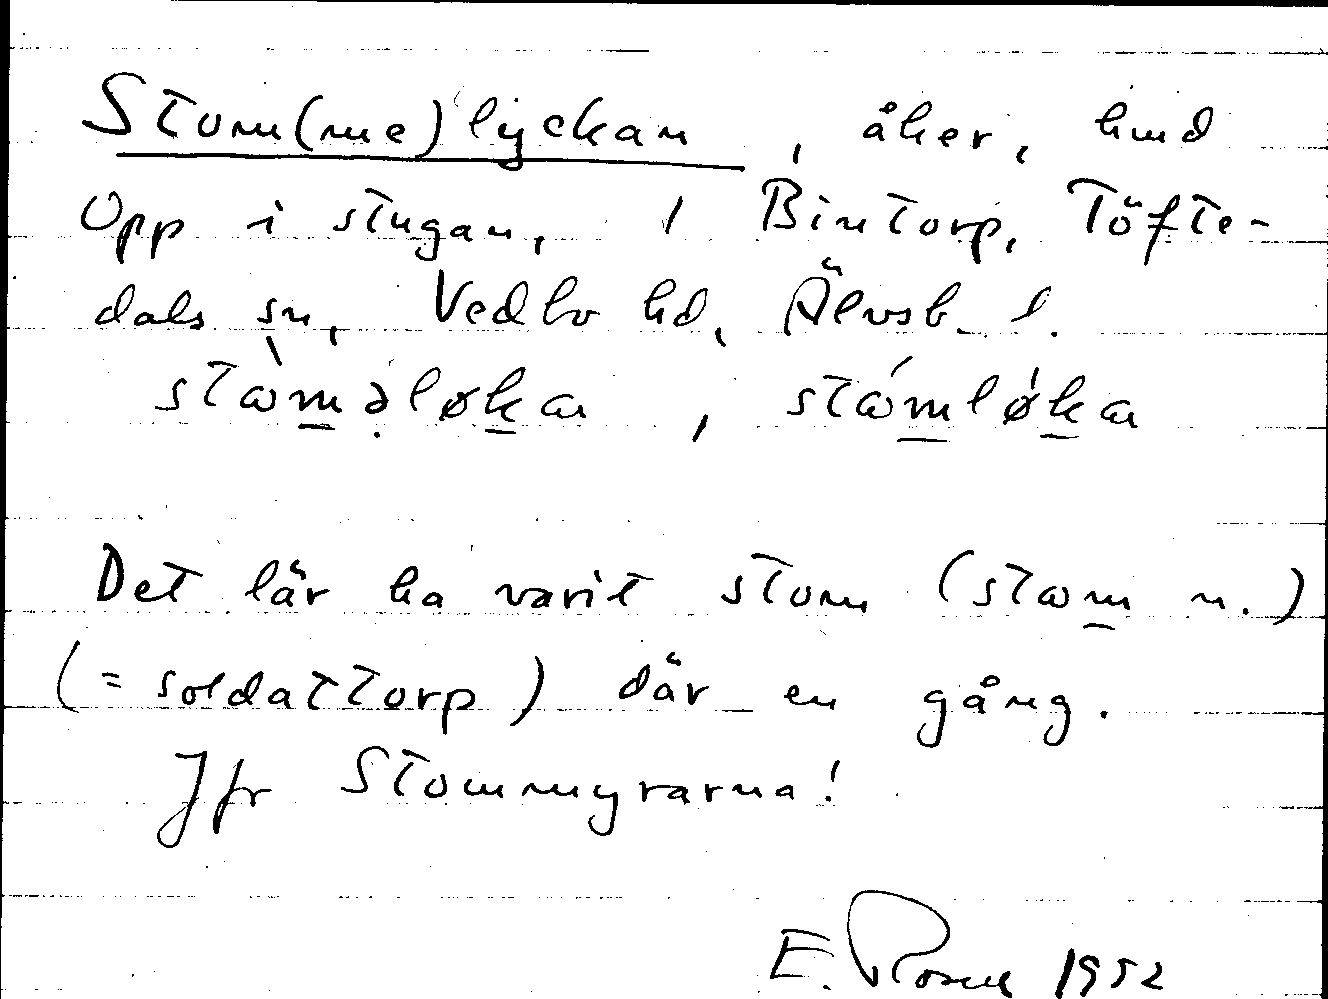 Stom(me)lyckan, åker, hmd
Opp i stugan, 1 Bintorp, Töfte-
dals sn, Vedbo hd, Älvsb. l.
stɷ̀mə̣løka, stɷ́mløka
Det lär ha varit stom (stɷm n.)
(= soldattorp) där en gång.
Jfr Stommyrarna!
E. Rosell 1952